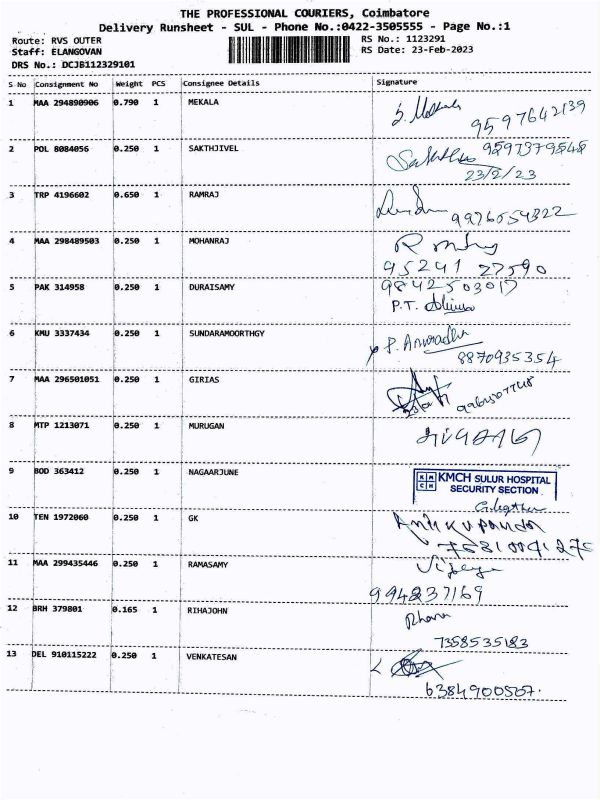 THE PROFESSIONAL COURIERS, Coimbatore
Delivery Runsheet - SUL - Phone No.:0422-3505555 - Page No.:1
Route: RVS OUTER
Staff: ELANGOVAN
DRS No.: DCJB112329101
RS No.: 1123291
RS Date: 23-Feb-2023
S No Consignment No Weight PCS Consignee Details Signature
1 MAA 294890906 0.790 1 MEKALA
9597642139
2 POL 8084056 0.250 1 SAKTHJIVEL
23/2/23
3 TRP 4196602 0.650 1 RAMRAJ
4 MAA 298489503 0.250 1 MOHANRAJ
95241 27590
5 PAK 314958 0.250 1 DURAISAMY
9842503017
P.T.
6 KMU 3337434 0.250 1 SUNDARAMOORTHGY
P. Anuradha
8870935354
7 MAA 296501051 0.250 1 GIRIAS
8 MTP 1213071 0.250 1 MURUGAN
9 BOD 363412 0.250 1 NAGAARJUNE
KMCH SULUR HOSPITAL
SECURITY SECTION
10 TEN 1972060 0.250 1 GK
11 MAA 299435446 0.250 1 RAMASAMY
994237169
12 BRH 379801 0.165 1 RIHAJOHN
7358535183
13 DEL 910115222 0.250 1 VENKATESAN
6384900507.